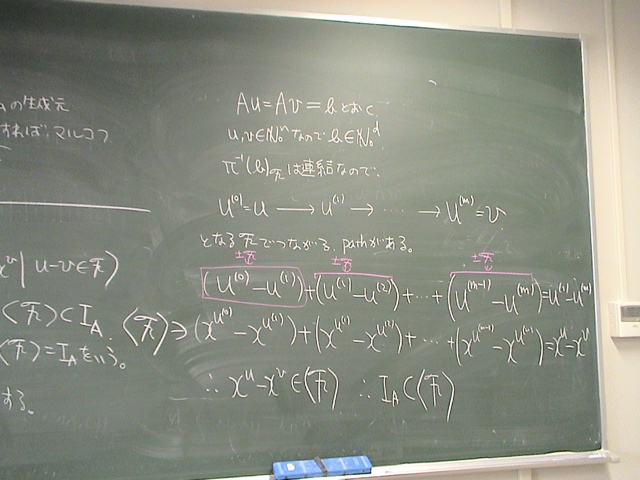 の生成元
すれば, マルコフ
x^v | u-v∈𝓕)
⟨𝓕⟩⊂I_A.
⟨𝓕⟩=I_Aをいう。
する。
Au = Av = b とおく
u, v∈ℕ₀ⁿ なので b∈ℕ₀ᵈ
π⁻¹(b)_𝓕 は連結なので.
u⁽⁰⁾=u → u⁽¹⁾ → ‥‥ → u⁽ᵐ⁾=v
となる 𝓕 でつながる path がある。
±𝓕 ±𝓕 ±𝓕
(u⁽⁰⁾-u⁽¹⁾)+(u⁽¹⁾-u⁽²⁾)+ ‥ +(u⁽ᵐ⁻¹⁾-u⁽ᵐ⁾)=
⟨𝓕⟩∋(x^{u⁽⁰⁾}-x^{u⁽¹⁾})+(x^{u⁽¹⁾}-x^{u⁽²⁾})+ ‥ +(x^{u⁽ᵐ⁻¹⁾}-x^{u⁽ᵐ⁾})=x^u-x^v
∴ x^u-x^v∈⟨𝓕⟩ ∴ I_A⊂⟨𝓕⟩